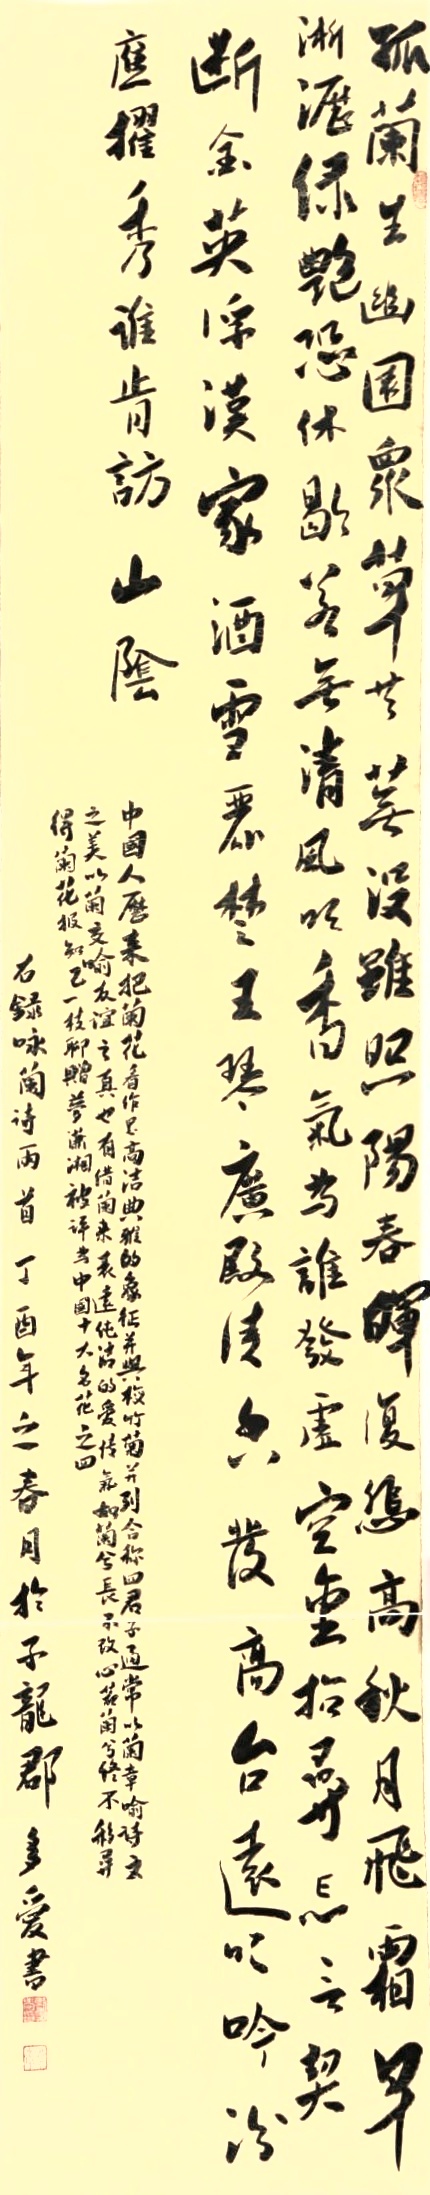 孤蘭生幽園眾草共蕪沒雖照陽春暉復悲高秋月飛霜早
淅瀝綠艷恐休歇若無清風吹香氣為誰發虛空臺拾翠忘言契
斷金英浮漢家酒雪麗楚王琴廣殿清香發高台遠吹吟汾
應擢秀誰肯訪山陰
中國人歷來把蘭花看作是高洁典雅的象征并與梅竹菊并列合称四君子通常以蘭章喻诗文
之美以蘭交喻友谊之真也有借蘭来表達纯洁的愛情氣如蘭兮長不改心若蘭兮终不移尋
得蘭花报知己一枝聊赠夢瀟湘被评为中國十大名花之四
右錄咏蘭诗两首丁酉年之春月於子龍郡多愛書